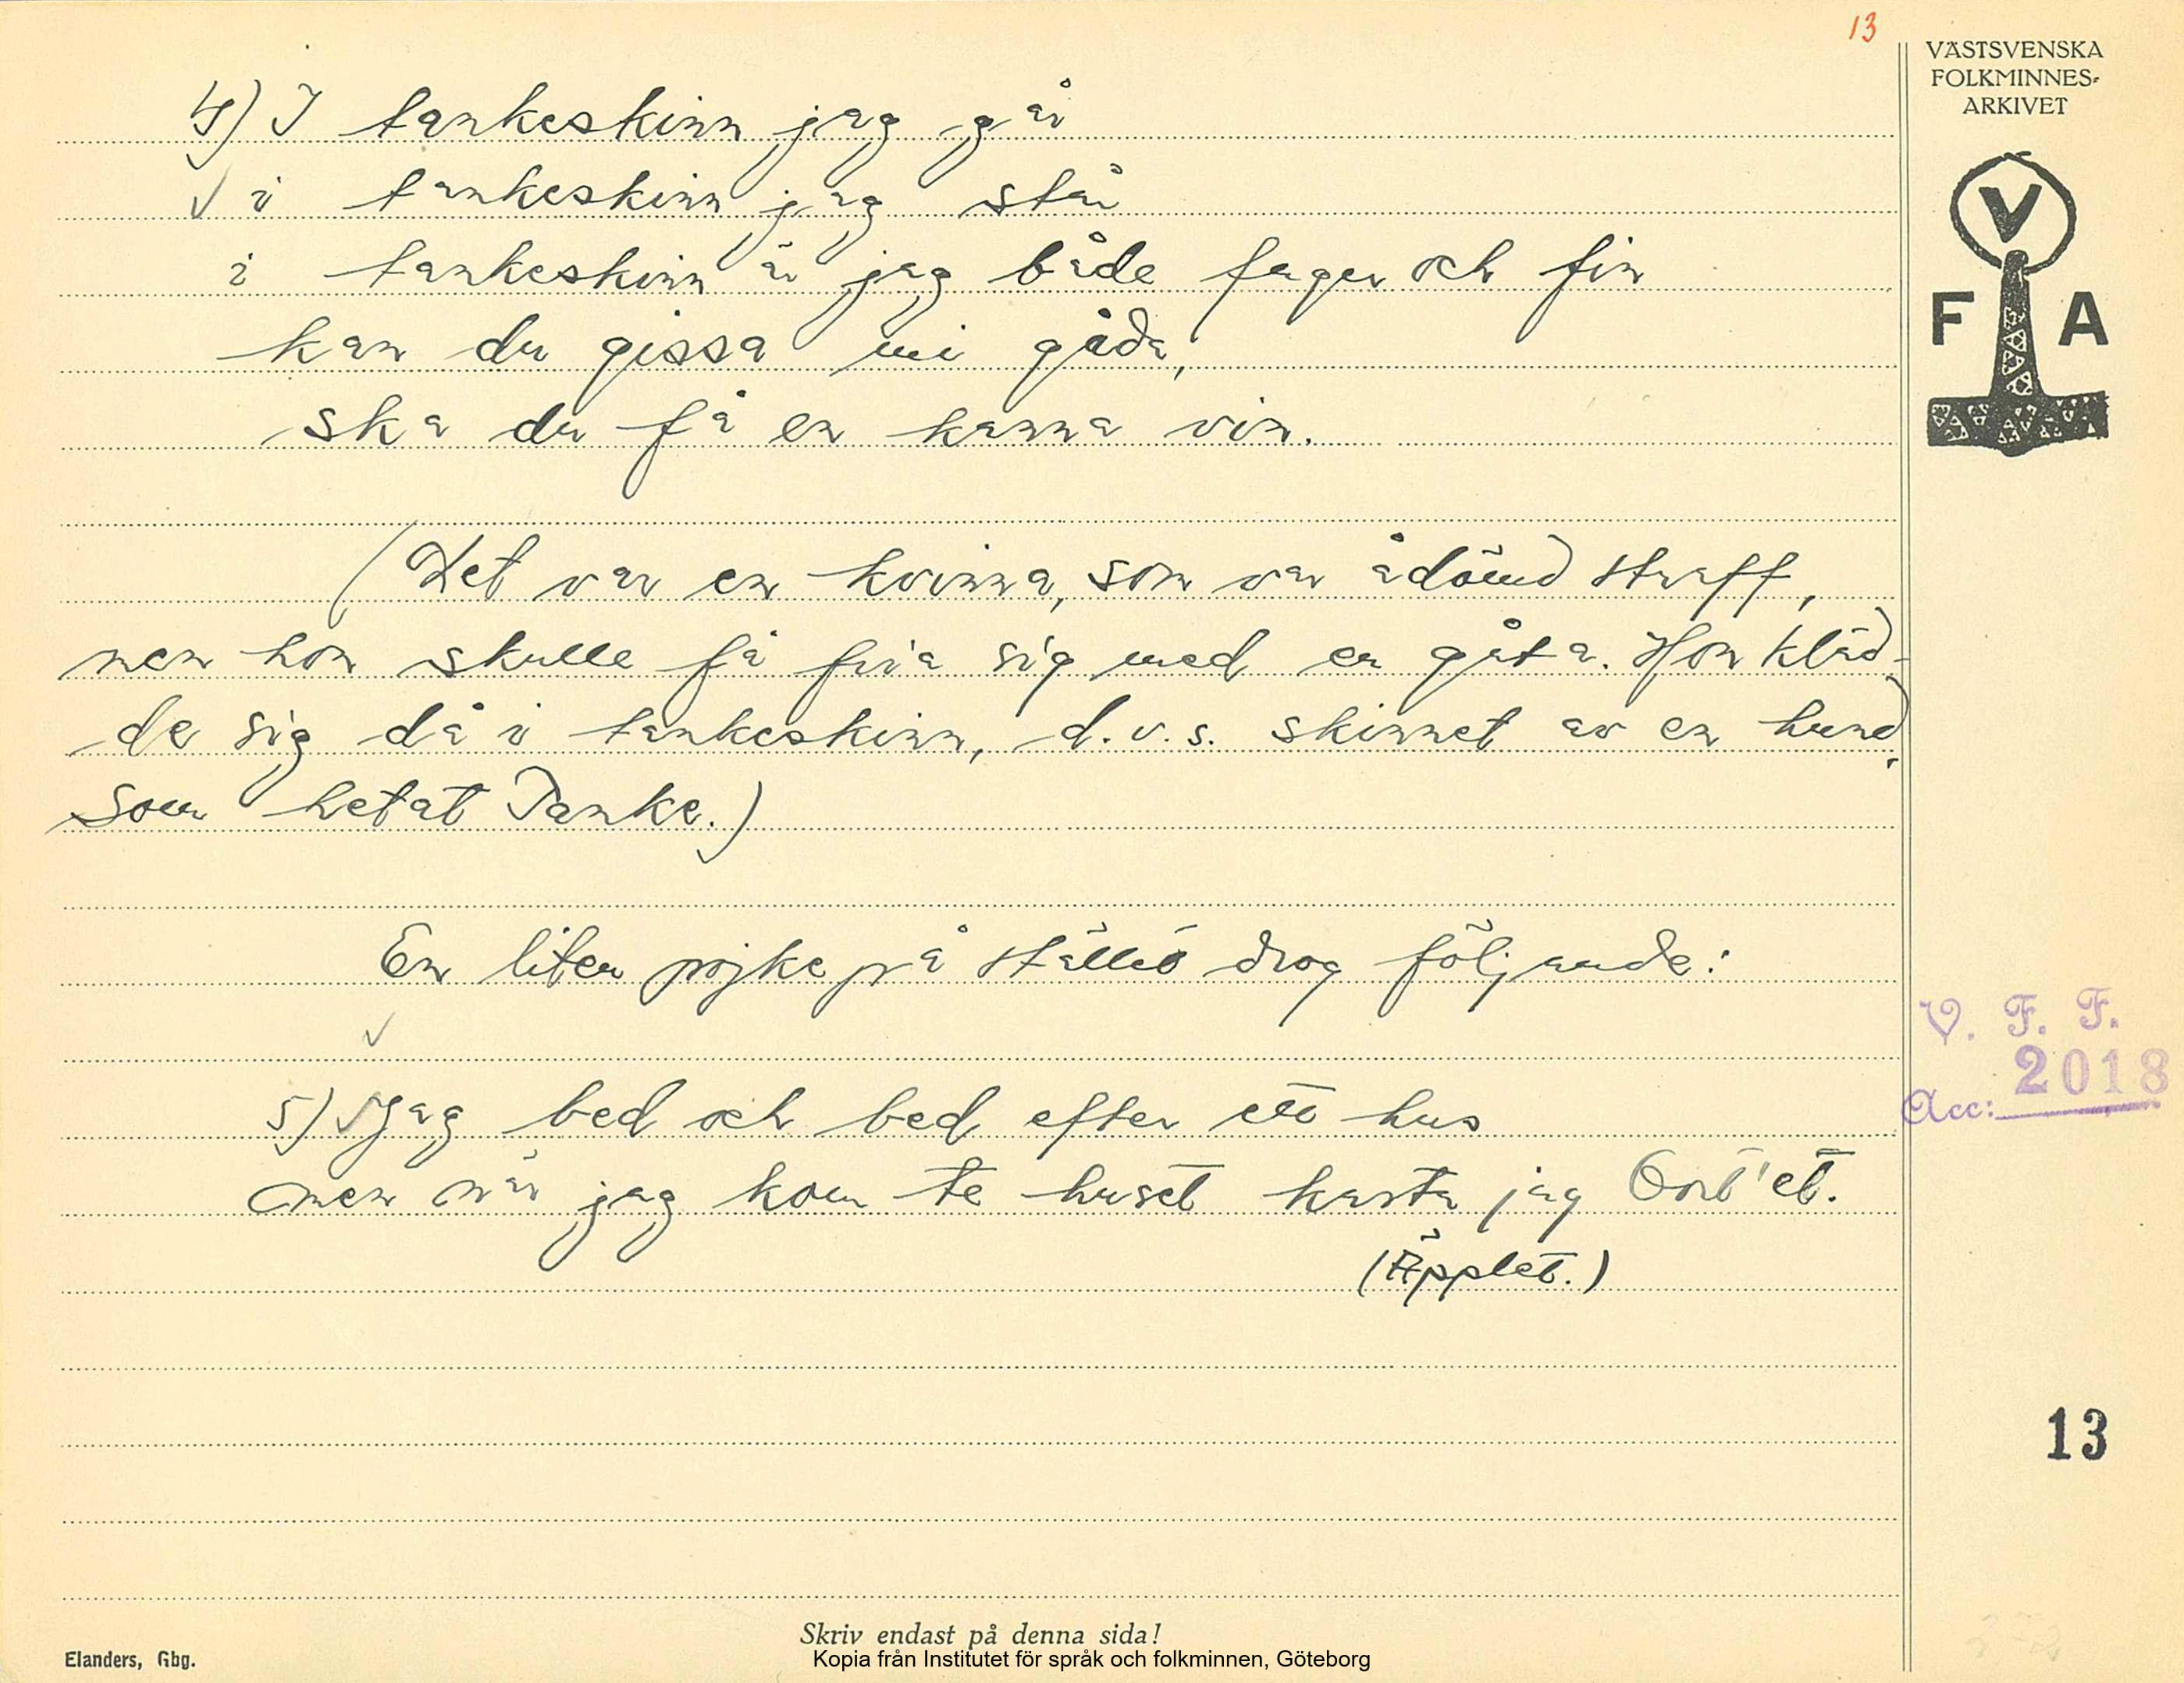 13
VÄSTSVENSKA
FOLKMINNES-
ARKIVET
V
F A
4) I tankeskinn jag går
i tankeskinn jag står
i tankeskinn är jag både fager och fin
kan du gissa mi gåda,
ska du få en kanna vin.
(Det var en kvinna, som var ådömd straff,
men hon skulle få fria sig med en gåta. Hon kläd-
de sig då i tankeskinn, d.v.s. skinnet av en hund,
som hetat Tanke.)
En liten pojke på stället drog följande:
5) Jag bed och bed efter ett hus
men när jag kom te huset kasta jag bort'et.
(Äpplet.)
V. F. F.
Acc: 2018
13
Skriv endast på denna sida!
Elanders, Gbg.
Kopia från Institutet för språk och folkminnen, Göteborg